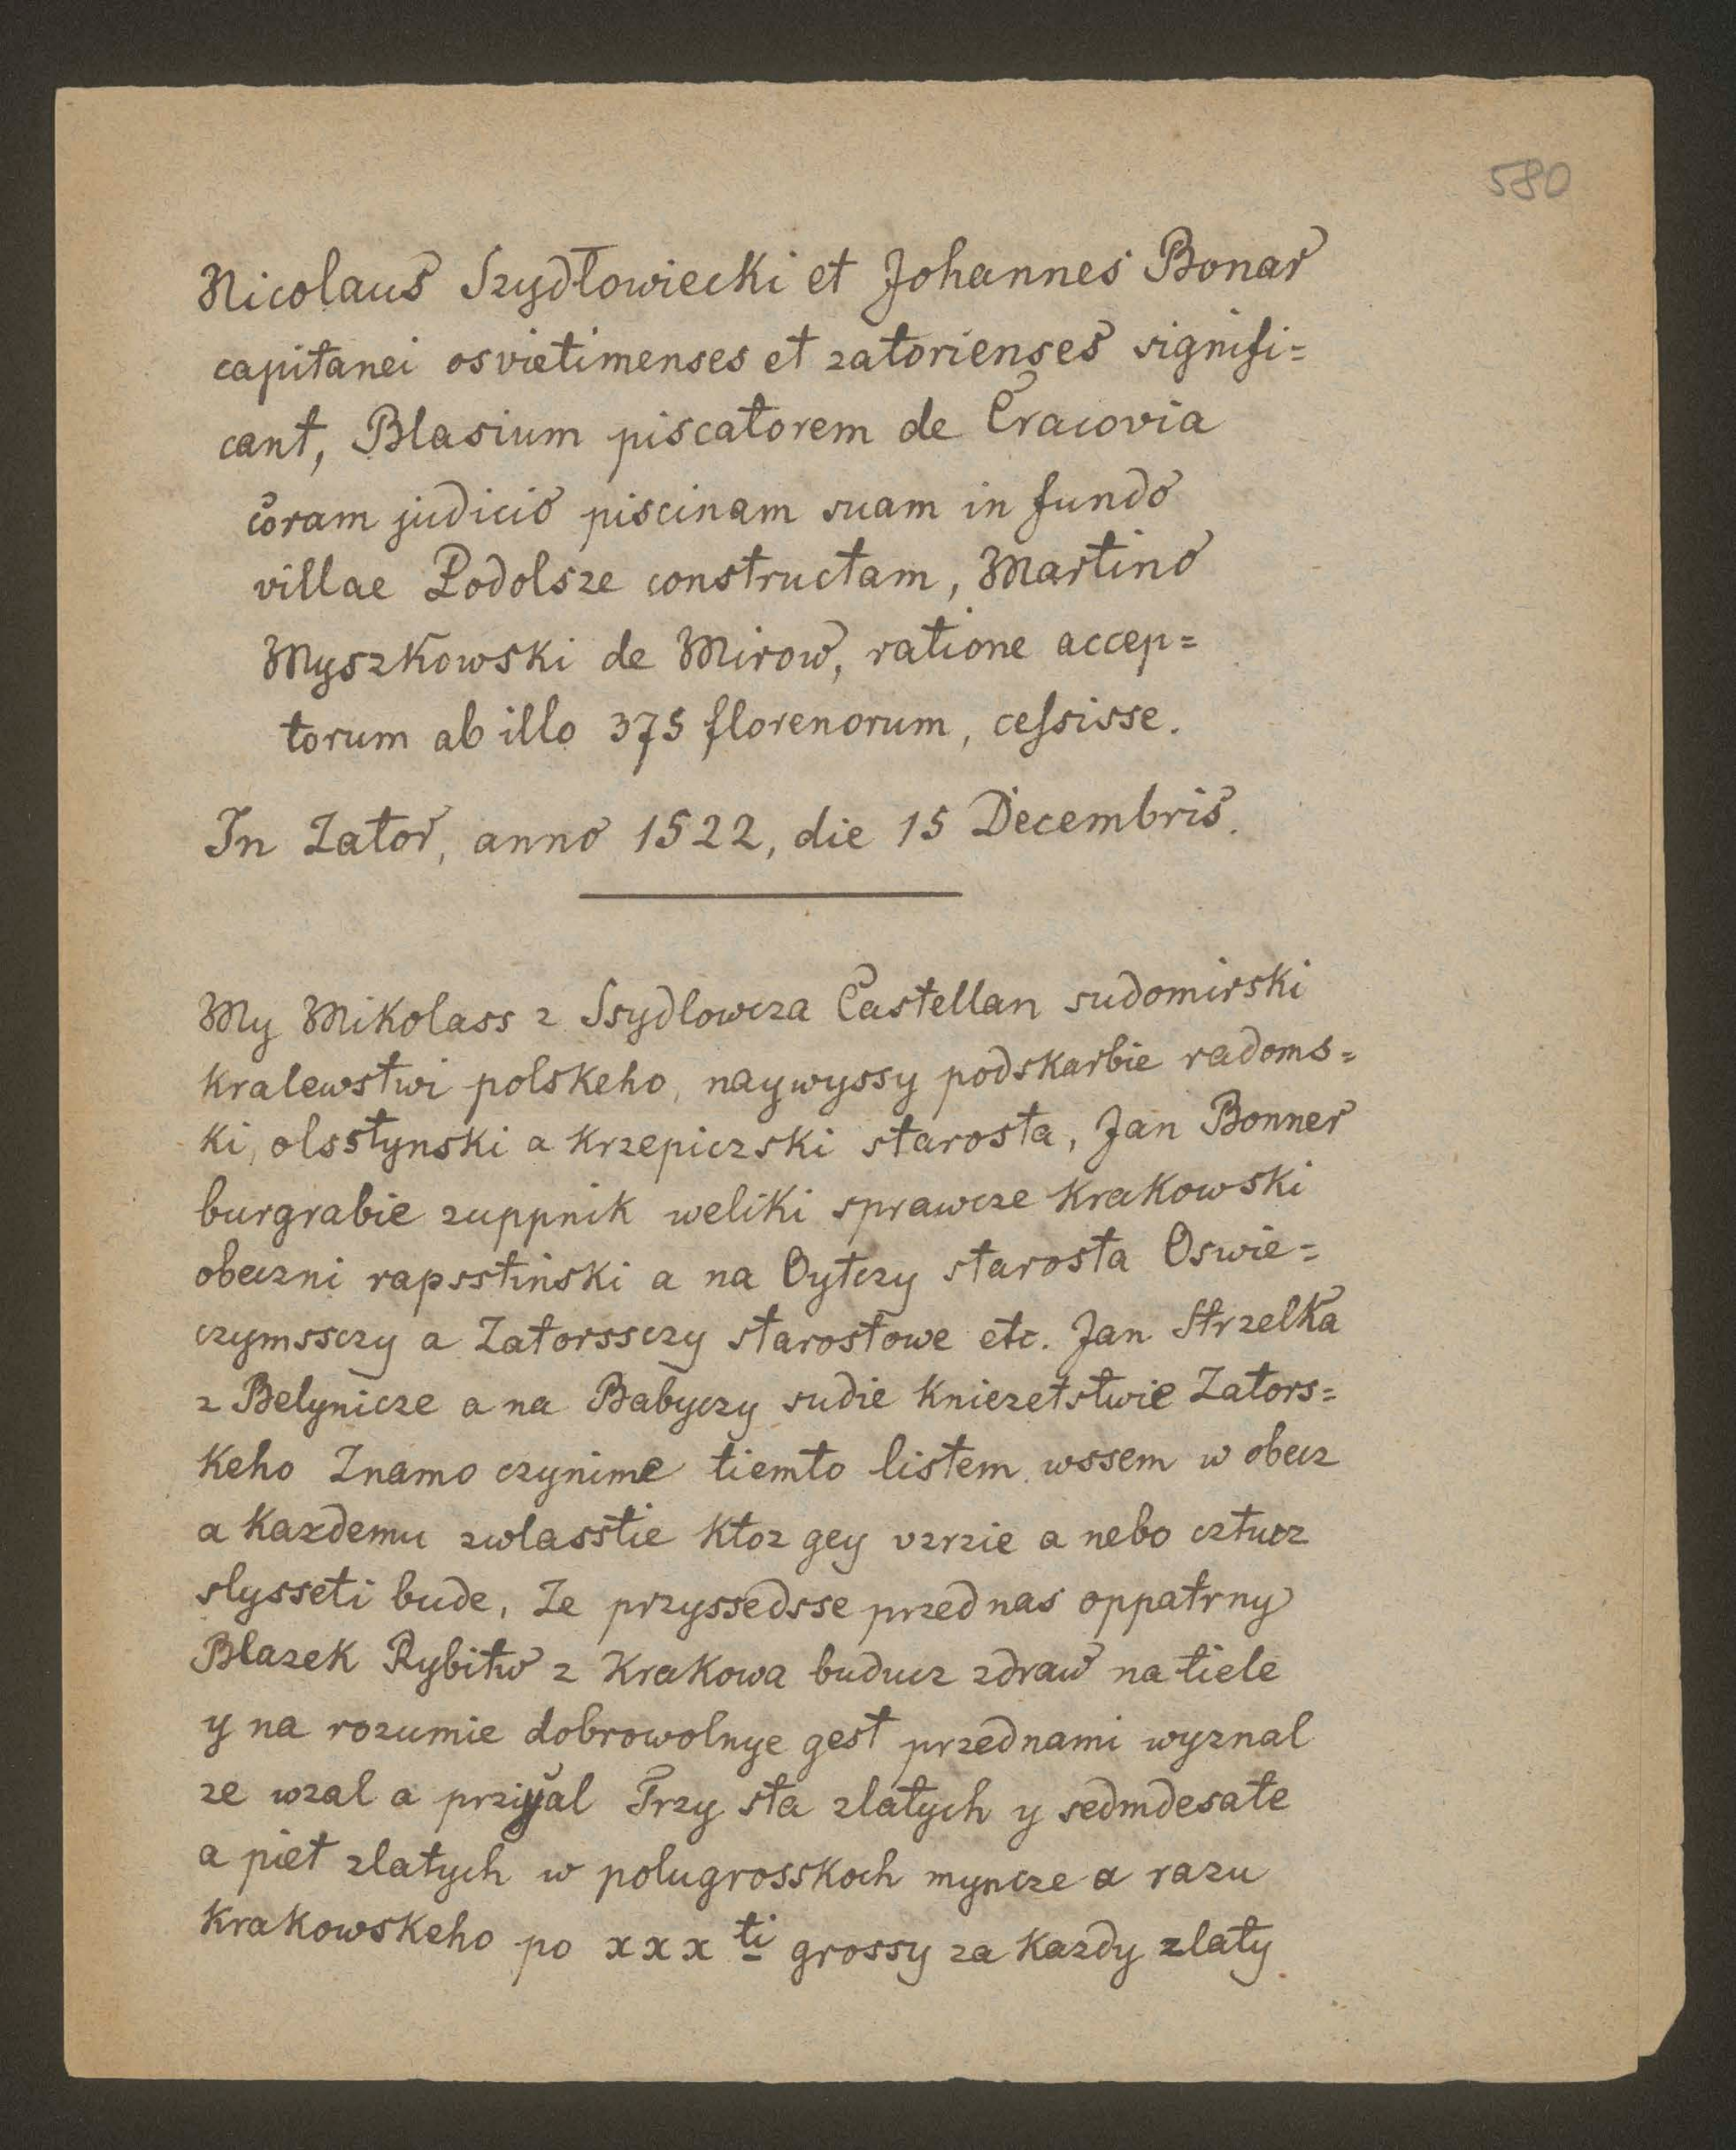 580
Nicolaus Szydłowiecki et Johannes Bonar
capitanei osvietimenses et zatorienses signifi=
cant, Blasium piscatorem de Cracovia
coram judicio piscinam suam in fundo
villae Podolsze constructam, Martino
Myszkowski de Mirow, ratione accep=
torum ab illo 375 florenorum, ceſsisse.
In Zator, anno 1522, die 15 Decembris.
My Mikolass z Ssydlowcza Castellan sudomirski
kralewstwi polskeho, naywyssy podskarbie radoms=
ki, olsstynski a krzepiczski starosta, Jan Bonner
burgrabie zuppnik weliki sprawcze krakowski
obeczni rapsstinski a na Oytczy starosta Oswie=
czymssczy a Zatorssczy starostowe etc. Jan Strzelka
z Belynicze a na Babyczy sudie kniezetstwie Zators=
keho Znamo czynime tiemto listem wssem w obecz
a kazdemu zwlasstie ktoz gey vzrzie a nebo cztucz
slysseti bude, Ze przyssedsse przed nas oppatrny
Blazek Rybitw z Krakowa buducz zdraw na tiele
y na rozumie dobrowolnye gest przednami wyznal
ze wzal a przyyal Trzy sta zlatych y sedmdesate
a piet zlatych w polugrosskoch myncze a razu
krakowskeho po xxx ti grossy za kazdy zlaty